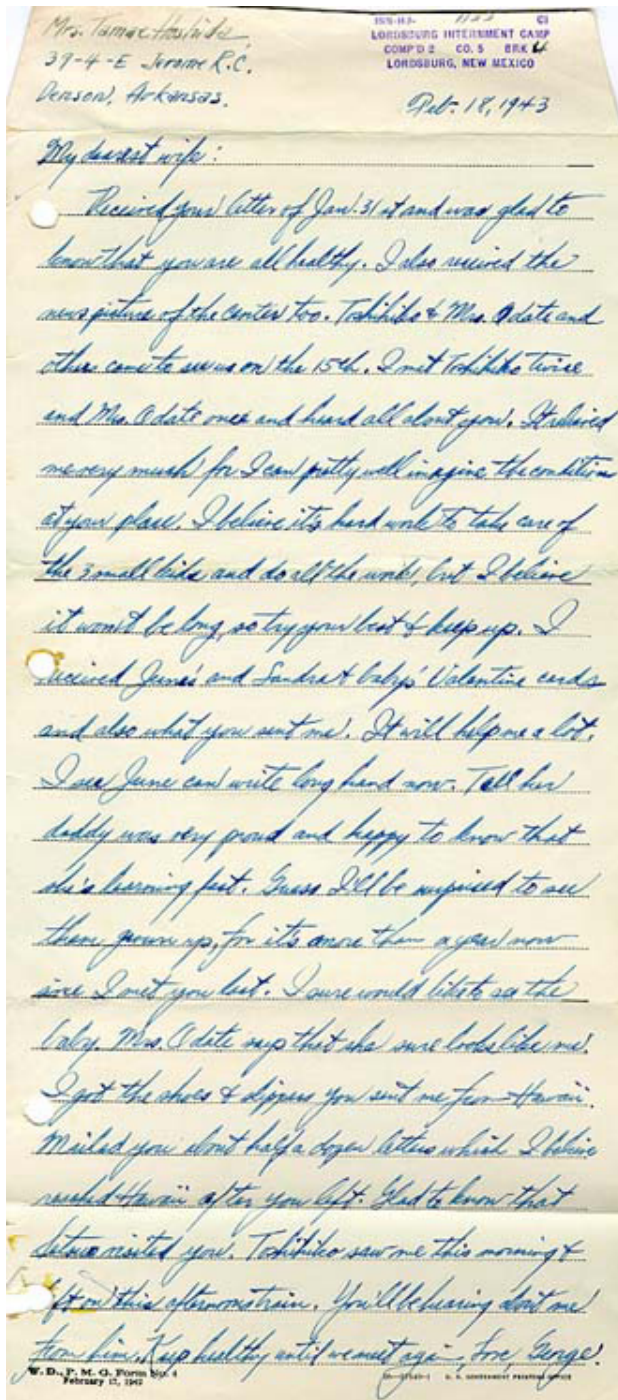 Mrs. Tamae Hoshida
39-4-E Jerome R.C.
Denson, Arkansas.
ISN-HJ- CI
LORDSBURG INTERNMENT CAMP
COMP'D 2 CO. 5 BRK 4
LORDSBURG, NEW MEXICO
Feb. 18, 1943
My dearest wife:
Received your letter of Jan. 31st and was glad to
know that you are all healthy. I also received the
news picture of the center too. Toshihiko & Mrs. Odate and
others came to see us on the 15th. I met Toshihiko twice
and Mrs. Odate once and heard all about you. It relieved
me very much for I can pretty well imagine the condition
at your place. I believe it's hard work to take care of
the 3 small kids and do all the work, but I believe
it won't be long, so try your best & keep up. I
received June's and Sandra & baby's Valentine cards
and also what you sent me. It will help me a lot.
I see June can write long hand now. Tell her
daddy was very proud and happy to know that
she's learning fast. Guess I'll be surprised to see
them grown up, for it's more than a year now
since I met you last. I sure would like to see the
baby. Mrs. Odate says that she sure looks like me.
I got the shoes & slippers you sent me from Hawaii.
Mailed you about half a dozen letters which I believe
reached Hawaii after you left. Glad to know that
visited you. Toshihiko saw me this morning &
left on this afternoon train. You'll be hearing about me
from him. Keep healthy until we meet again, Love, George.
W. D., P. M. G. Form No. 4
February 17, 1942
U. S. GOVERNMENT PRINTING OFFICE